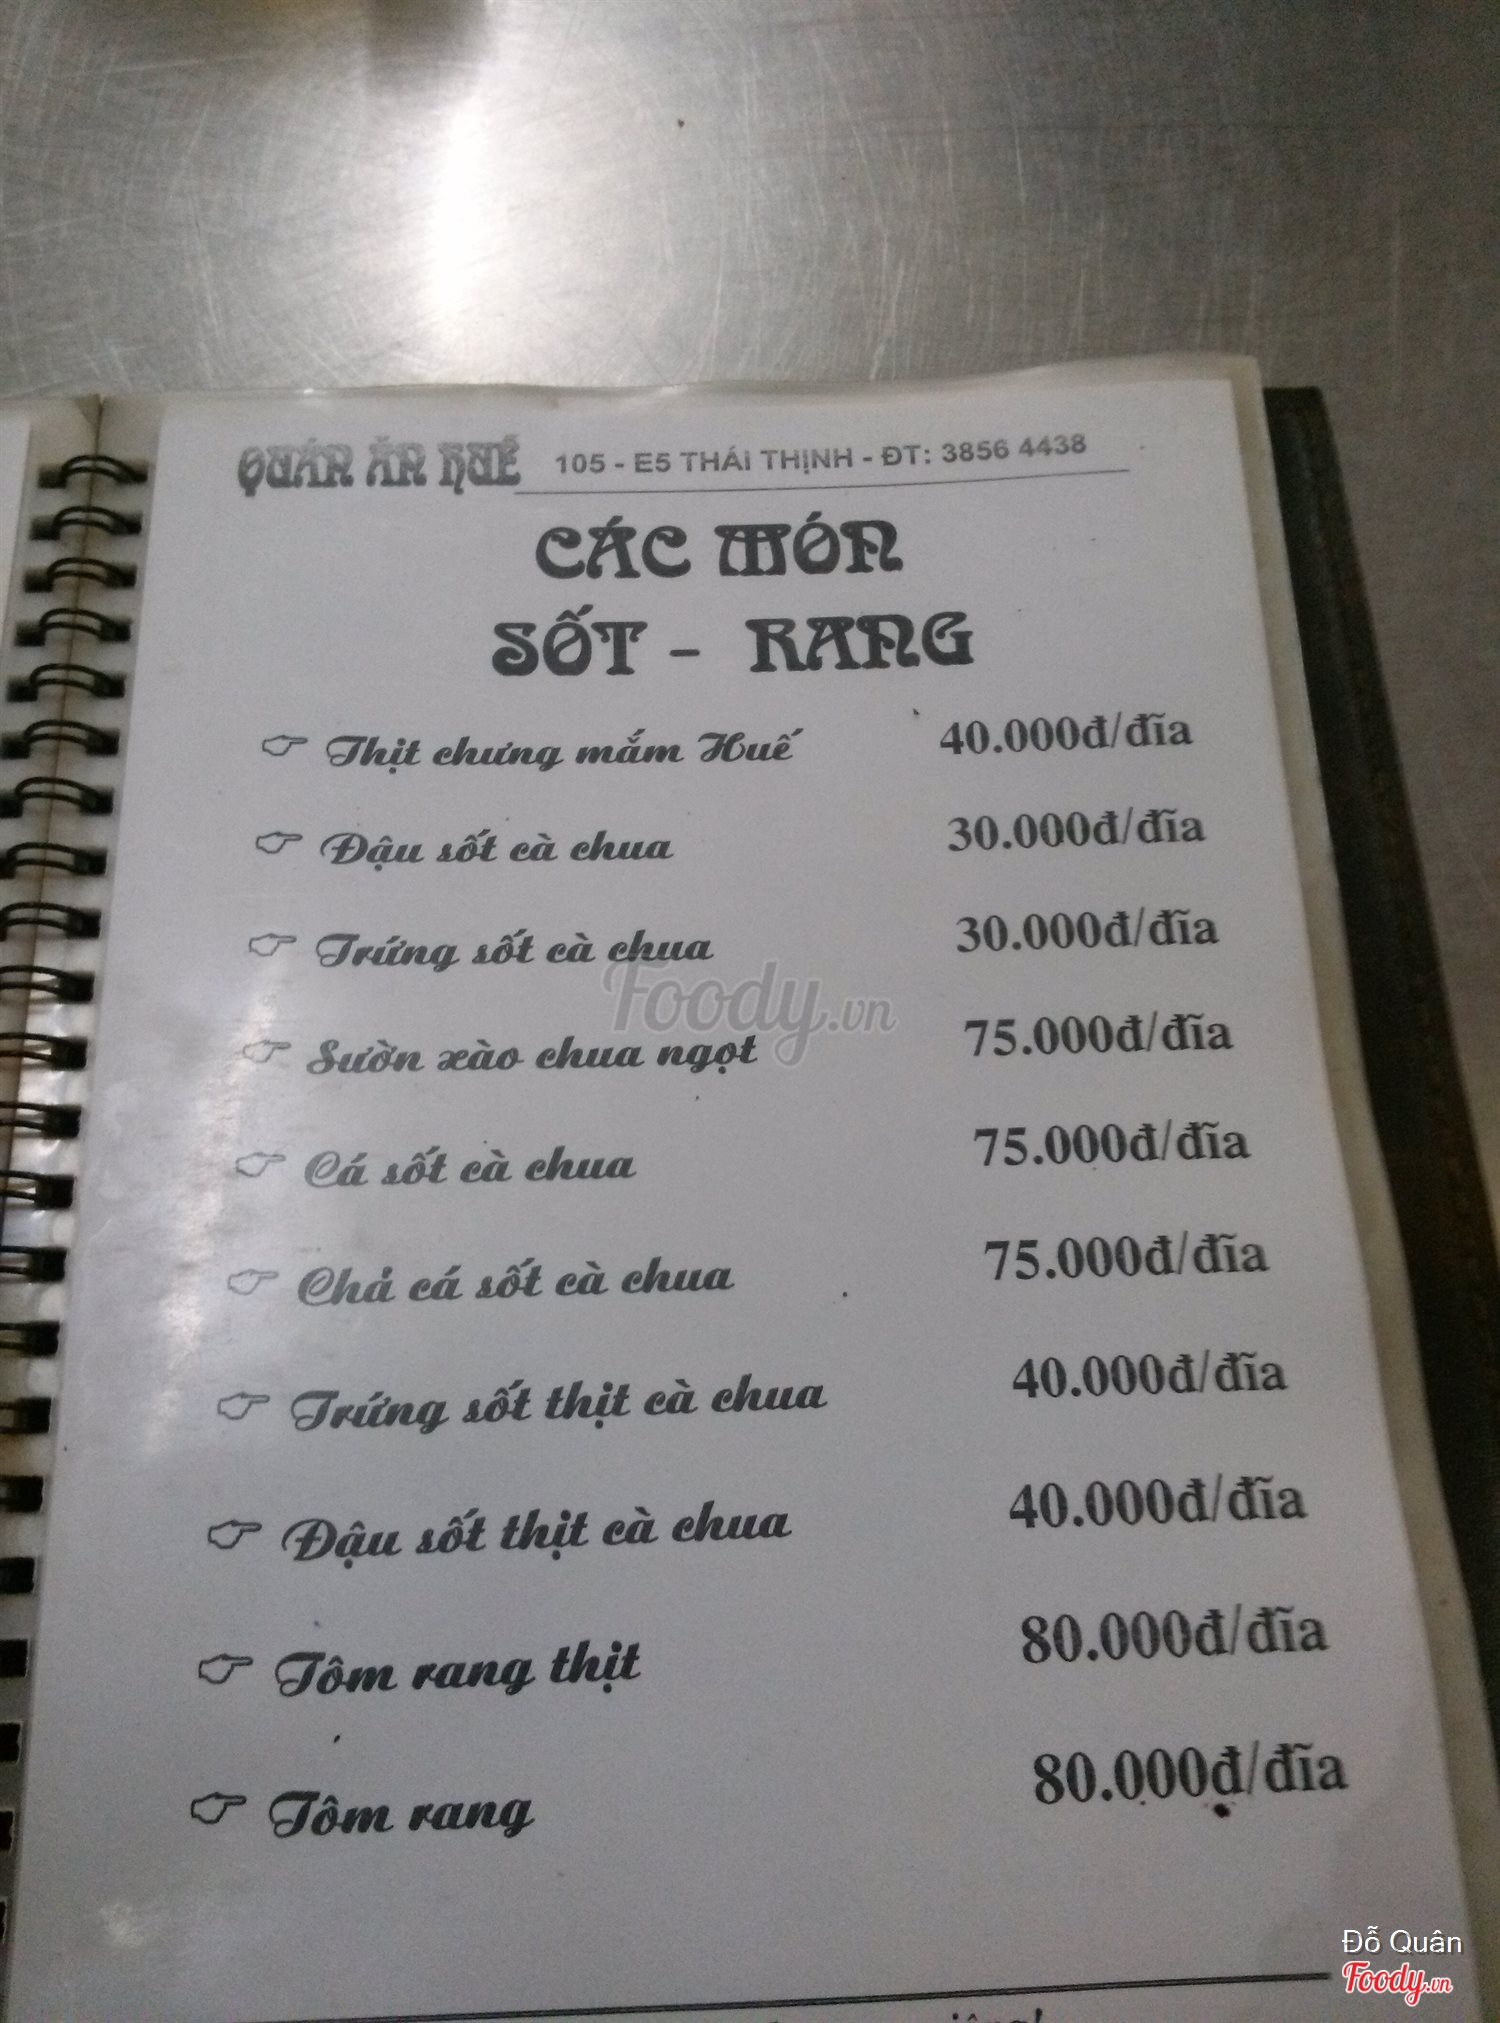 QUÁN ĂN HUẾ 105 - E5 THÁI THỊNH - ĐT: 3856 4438
CÁC MÓN
SỐT - RANG
Thịt chưng mắm Huế 40.000đ/đĩa
Đậu sốt cà chua 30.000đ/đĩa
Trứng sốt cà chua 30.000đ/đĩa
Foody.vn
Sườn xào chua ngọt 75.000đ/đĩa
Cá sốt cà chua 75.000đ/đĩa
Chả cá sốt cà chua 75.000đ/đĩa
Trứng sốt thịt cà chua 40.000đ/đĩa
Đậu sốt thịt cà chua 40.000đ/đĩa
Tôm rang thịt 80.000đ/đĩa
Tôm rang 80.000đ/đĩa
Đỗ Quân
Foody.vn